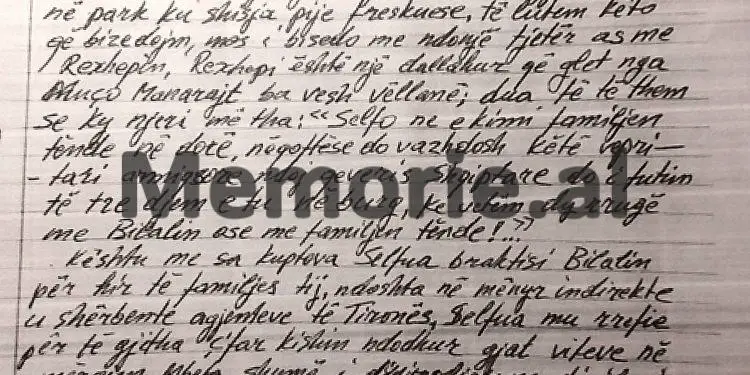 në park ku shisja pije freskuese, të lutem këto
që bizedojm, mos i bisedo me ndonjë tjetër as me
Rexhepin, Rexhepi është një dallakur që glet nga
Muço Manarajt ba vesh vëllanë; dua të të them
se ky njeri më tha: «Selfo ne e kimi familjen
tënde në dorë, nëqoftëse do vazhdosh këtë vepri-
-tari armiqsore ndaj qeveris Shqiptare do i futim
të tre djem e tu në burg, ke vetëm dy rrugë
me Bilalin ose me familjen tënde!...»
Kështu me sa kuptova Selfua braktisi Bilalin
për hir të familjes tij, ndoshta në mënyr indirekte
u shërbente agjenteve të Tironës, Selfua mu rrëfie
për të gjitha çfar kishin ndodhur gjat viteve në
shumë i
Memorie.al